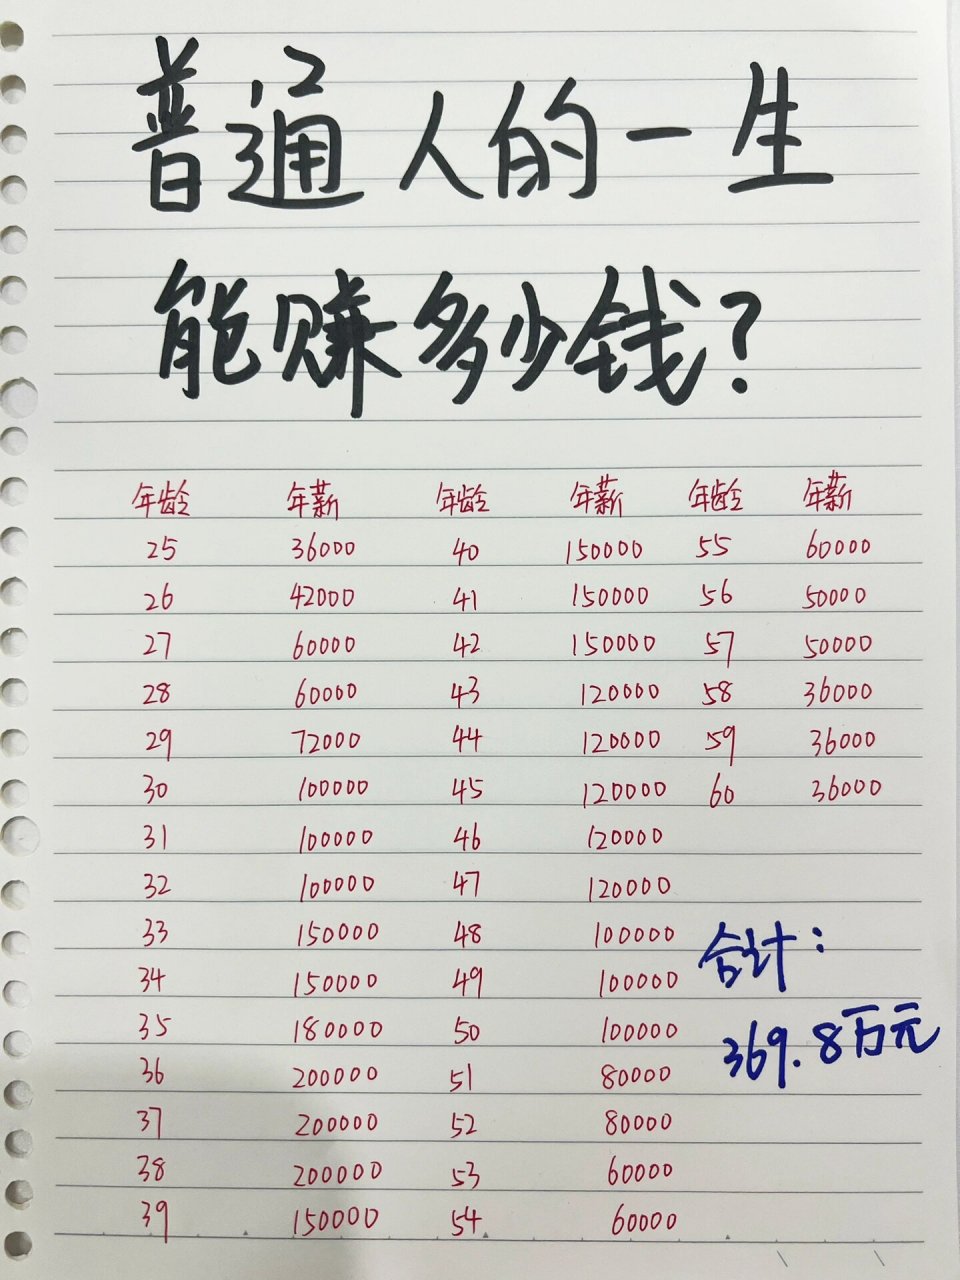 普通人的一生
能赚多少钱?
年龄 年薪 年龄 年薪 年龄 年薪
25 36000 40 150000 55 60000
26 42000 41 150000 56 50000
27 60000 42 150000 57 50000
28 60000 43 120000 58 36000
29 72000 44 120000 59 36000
30 100000 45 120000 60 36000
31 100000 46 120000
32 100000 47 120000
33 150000 48 100000
34 150000 49 100000
35 180000 50 100000
36 200000 51 80000
37 200000 52 80000
38 200000 53 60000
39 150000 54 60000
合计:
369.8万元